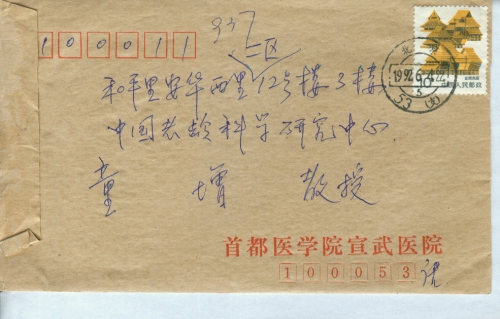 100011
937
二区
和平里安华西里12号楼3楼
中国老龄科学研究中心
童增 教授
北京
1992.6.4.22
53(支)
10
中国人民邮政
首都医学院宣武医院
100053